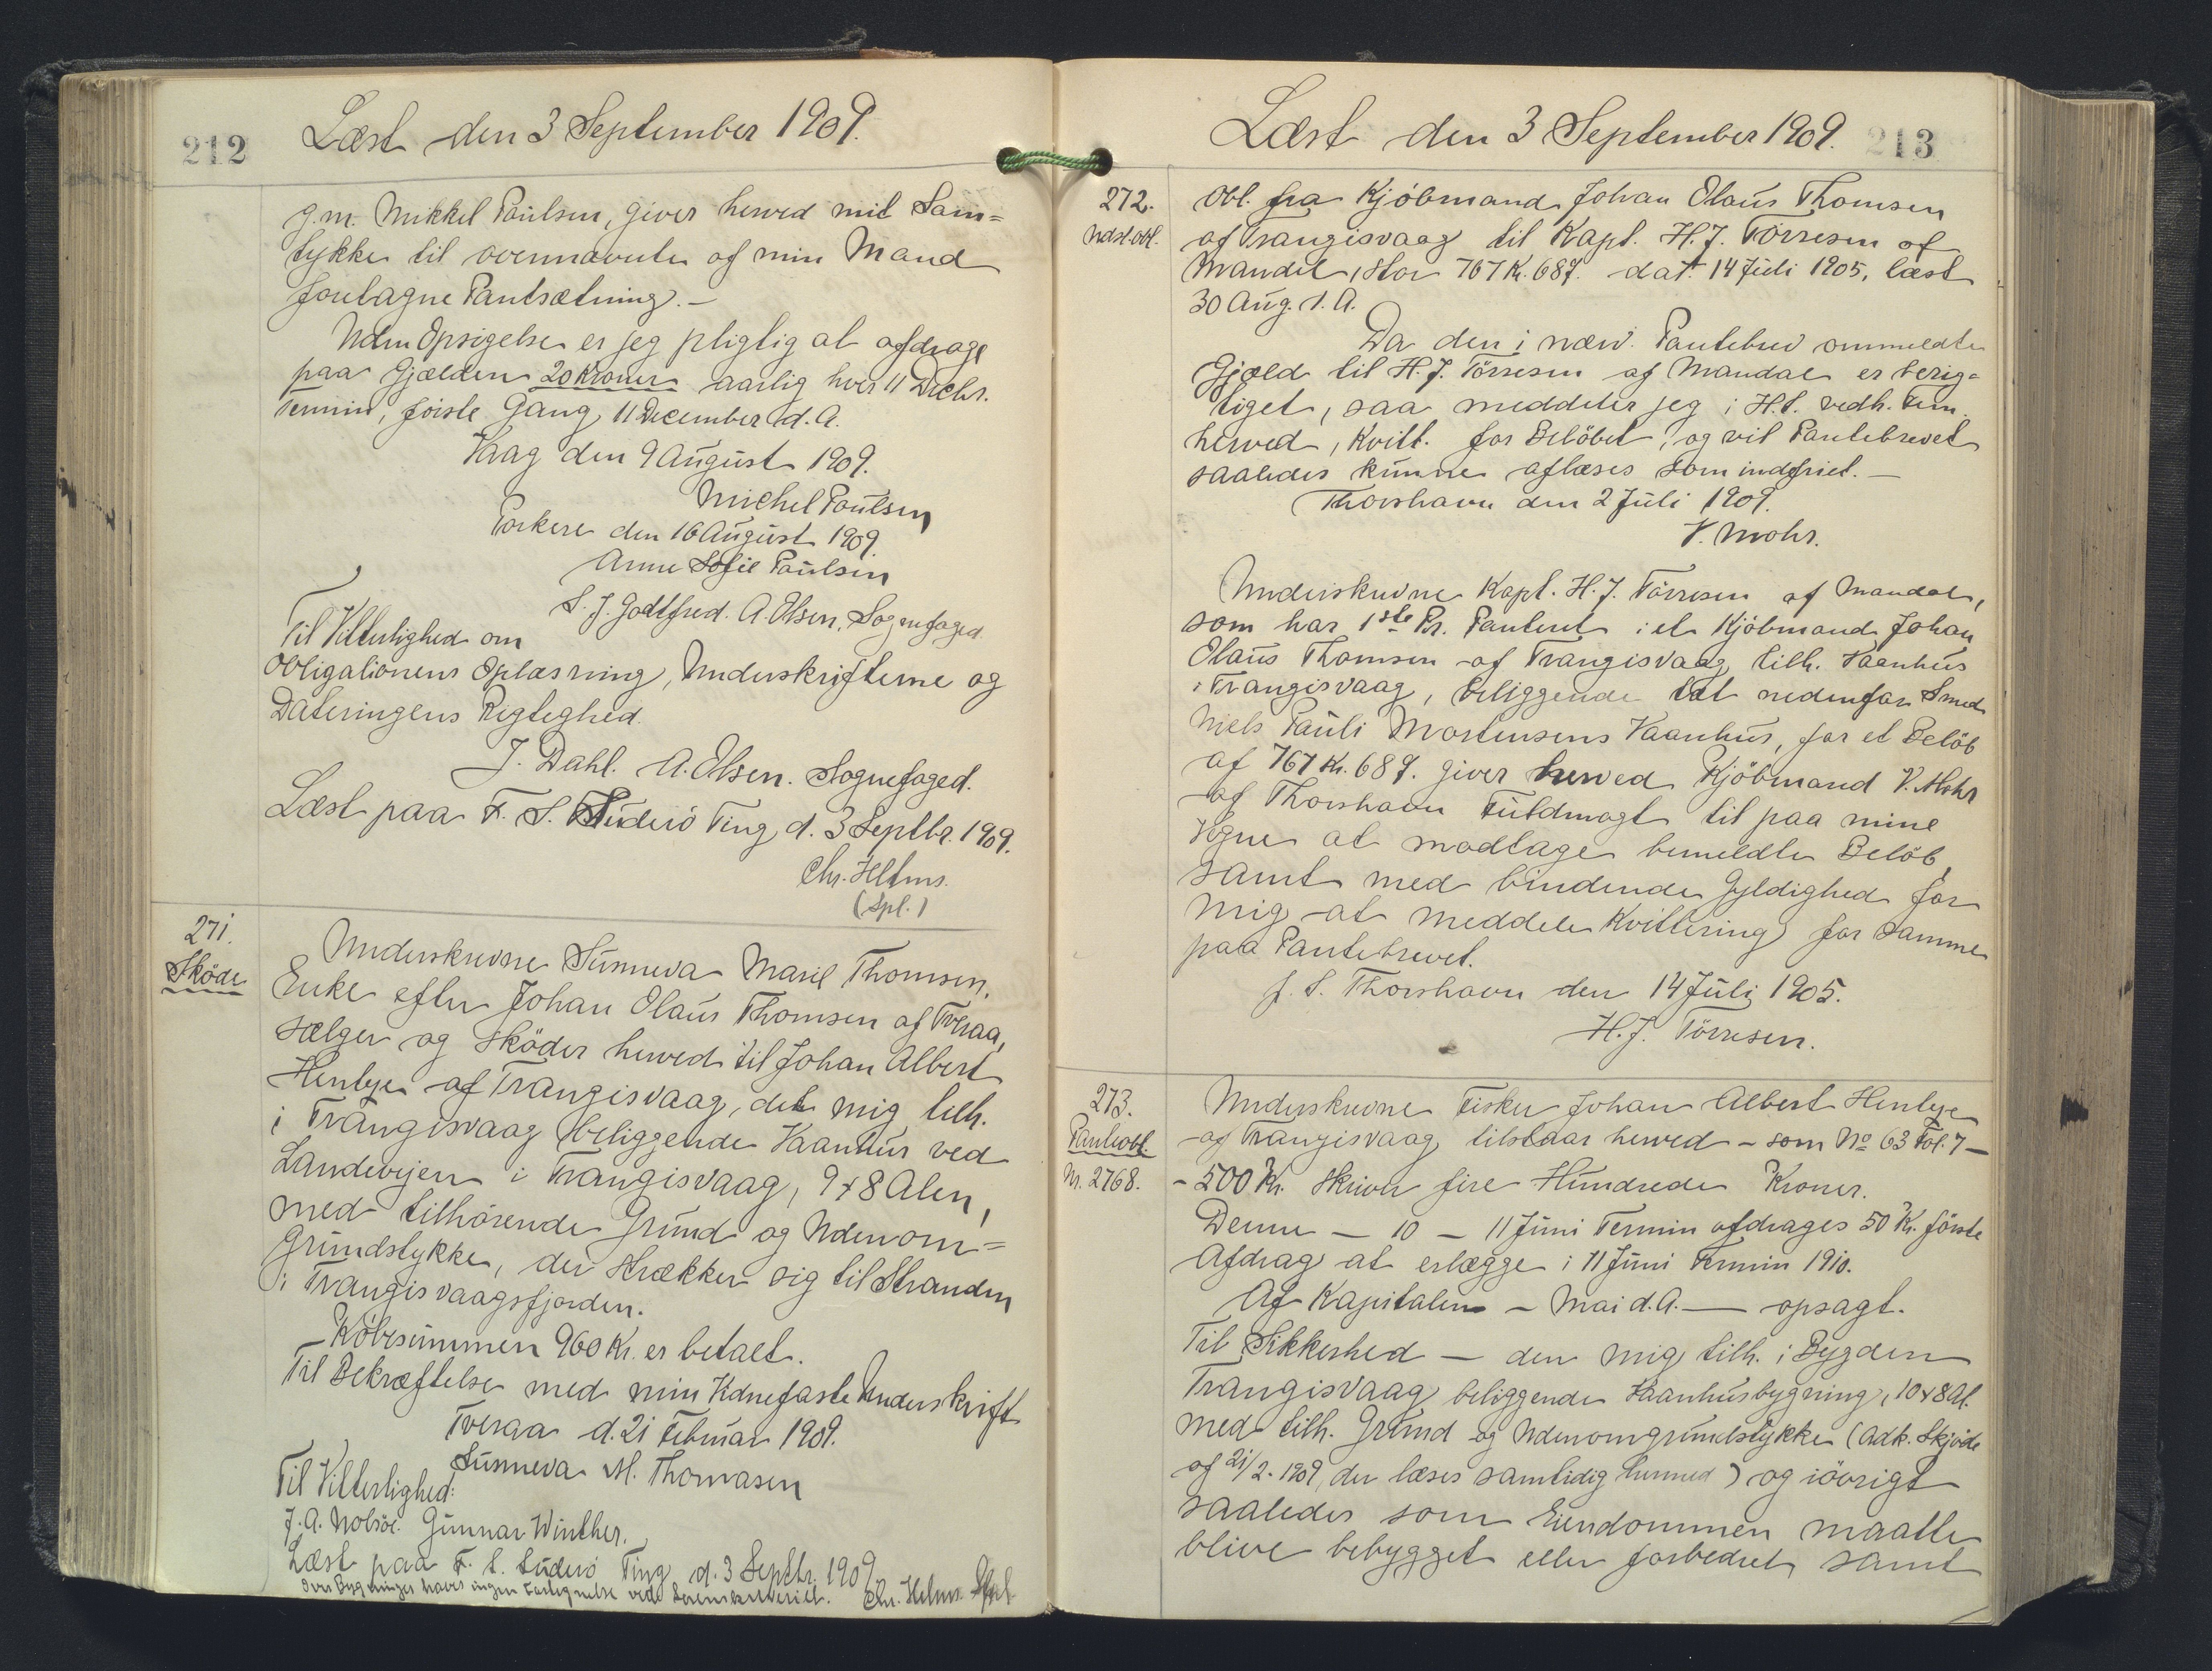 212
Læst den 3 September 1909.
g.m. Mikkel Paulsen, giver herved mit Sam=
tykke til ovennævnte af min Mand
foretagne Pantsætning. -
Uden Opsigelse er jeg pligtig at afdrage
paa Gjælden 20 Kroner aarlig hver 11 Decbr.
Termin, förste Gang 11 December d. A.
Vaag den 9 August 1909.
Michel Poulsen
Porkere den 16 August 1909.
Anne Sofie Paulsen
S. J. Godtfred. A. Olsen, Sognefoged.
Til Vitterlighed om
Obligationens Oplæsning, Underskrifterne og
Dateringens Rigtighed.
J. Dahl. A. Olsen. Sognefoged.
Læst paa F. S. Süderö Ting d. 3 Septbr. 1909.
Chr. Helms.
(Spl.)
271.
Sköde
Underskrevne Sunneva Marie Thomsen,
Enke efter Johan Olaus Thomsen af Tveraa,
sælger og sköder herved til Johan Albert
Hentze af Trangisvaag, det mig tilh.
i Trangisvaag beliggende Vaanhus ved
Landevejen i Trangisvaag, 9 x 8 Alen,
med tilhörende Grund og Udenom=
grundstykke, der strækker sig til Stranden
i Trangisvaagsfjorden.
- Köbesummen 960 Kr. er betalt.
Til Bekræftelse med min Vidnefaste Underskrift
Tveraa d. 21 Februar 1909.
Sunneva M. Thomasen
Til Vitterlighed:
J. A. Nolsöe. Gunnar Winther.
Læst paa F. S. Süderö Ting d. 3 Septbr. 1909
Over Bygninger haves ingen
Chr. Helms Spl.
Læst den 3 September 1909.
213
272.
Udsl. obl.
Obl. fra Kjöbmand Johan Olaus Thomsen
af Trangisvaag til Kapt. H. J. Törresen af
Mandal, stor 767 Kr. 68 Ø. dat. 14 Juli 1905, læst
30 Aug. s. A.
Da den i nærv. Pantebrev ommeldte
Gjæld til H. J. Törresen af Mandal er berig=
tiget, saa meddeler jeg i H.t. vedh.
herved, Kvitt. for Belöbet, og vil Pantebrevet
saaledes kunne aflæses som indfriet. -
Thorshavn den 2 Juli 1909.
V. Mohr.
Underskrevne Kapt. H. J. Törresen af Mandal,
som har 1ste Pr. Panteret i et Kjöbmand Johan
Olaus Thomsen af Trangisvaag tilh. Vaanhus
i Trangisvaag, beliggende tæt nedenfor Smed
Niels Pauli Mortensens Vaanhus, for et Belöb
af 767 Kr. 68 Ø. giver herved Kjöbmand V. Mohr
af Thorshavn Fuldmagt til paa mine
Vegne at modtage bemeldte Belöb,
samt med bindende Gyldighed for
mig at meddele Kvittering for samme
paa Pantebrevet.
p. t. Thorshavn den 14 Juli 1905.
H. J. Törresen.
273.
Panteobl.
Nr. 2768.
Underskrevne Fisker Johan Albert Hentze
af Trangisvaag tilstaar herved - som No 63 Fol. 7 -
- 500 Kr. skriver fire Hundrede Kroner.
Denne - 10 - 11 Juni Termin afdrages 50 Kr. förste
Afdrag at erlægge i 11 Juni Termin 1910.
Af Kapitalen - Mai d. A. - opsagt.
Til Sikkerhed - den mig tilh. i Bygden
Trangisvaag beliggende Vaanhusbygning, 10 x 8 Al.
med tilh. Grund og Udenomgrundstykke (adk. Skjöde
af 21/2. 1909, der læses samtidig hermed) og iövrigt
saaledes som Eiendommen maatte
blive bebygget eller forbedret, samt